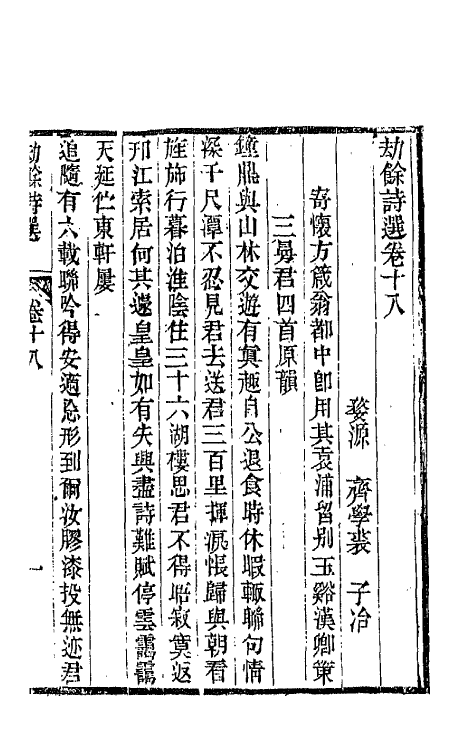 劫餘詩選卷十八
婺源 齊學裘 子冶
寄懷方箴翁都中卽用其袁浦留別玉谿漢卿策
三勇君四首原韻
鐘鼎與山林交遊有眞趣自公退食時休暇輒聯句情
深千尺潭不忍見君去送君三百里揮淚悵歸與朝看
旌旆行暮泊淮陰住三十六湖樓思君不得晤寂寞返
邗江索居何其遽皇皇如有失興盡詩難賦停雲靄靄
天延伫東軒屢
追隨有六載聯吟得安適忘形到爾汝膠漆投無迹君
劫餘詩選
卷十八
一